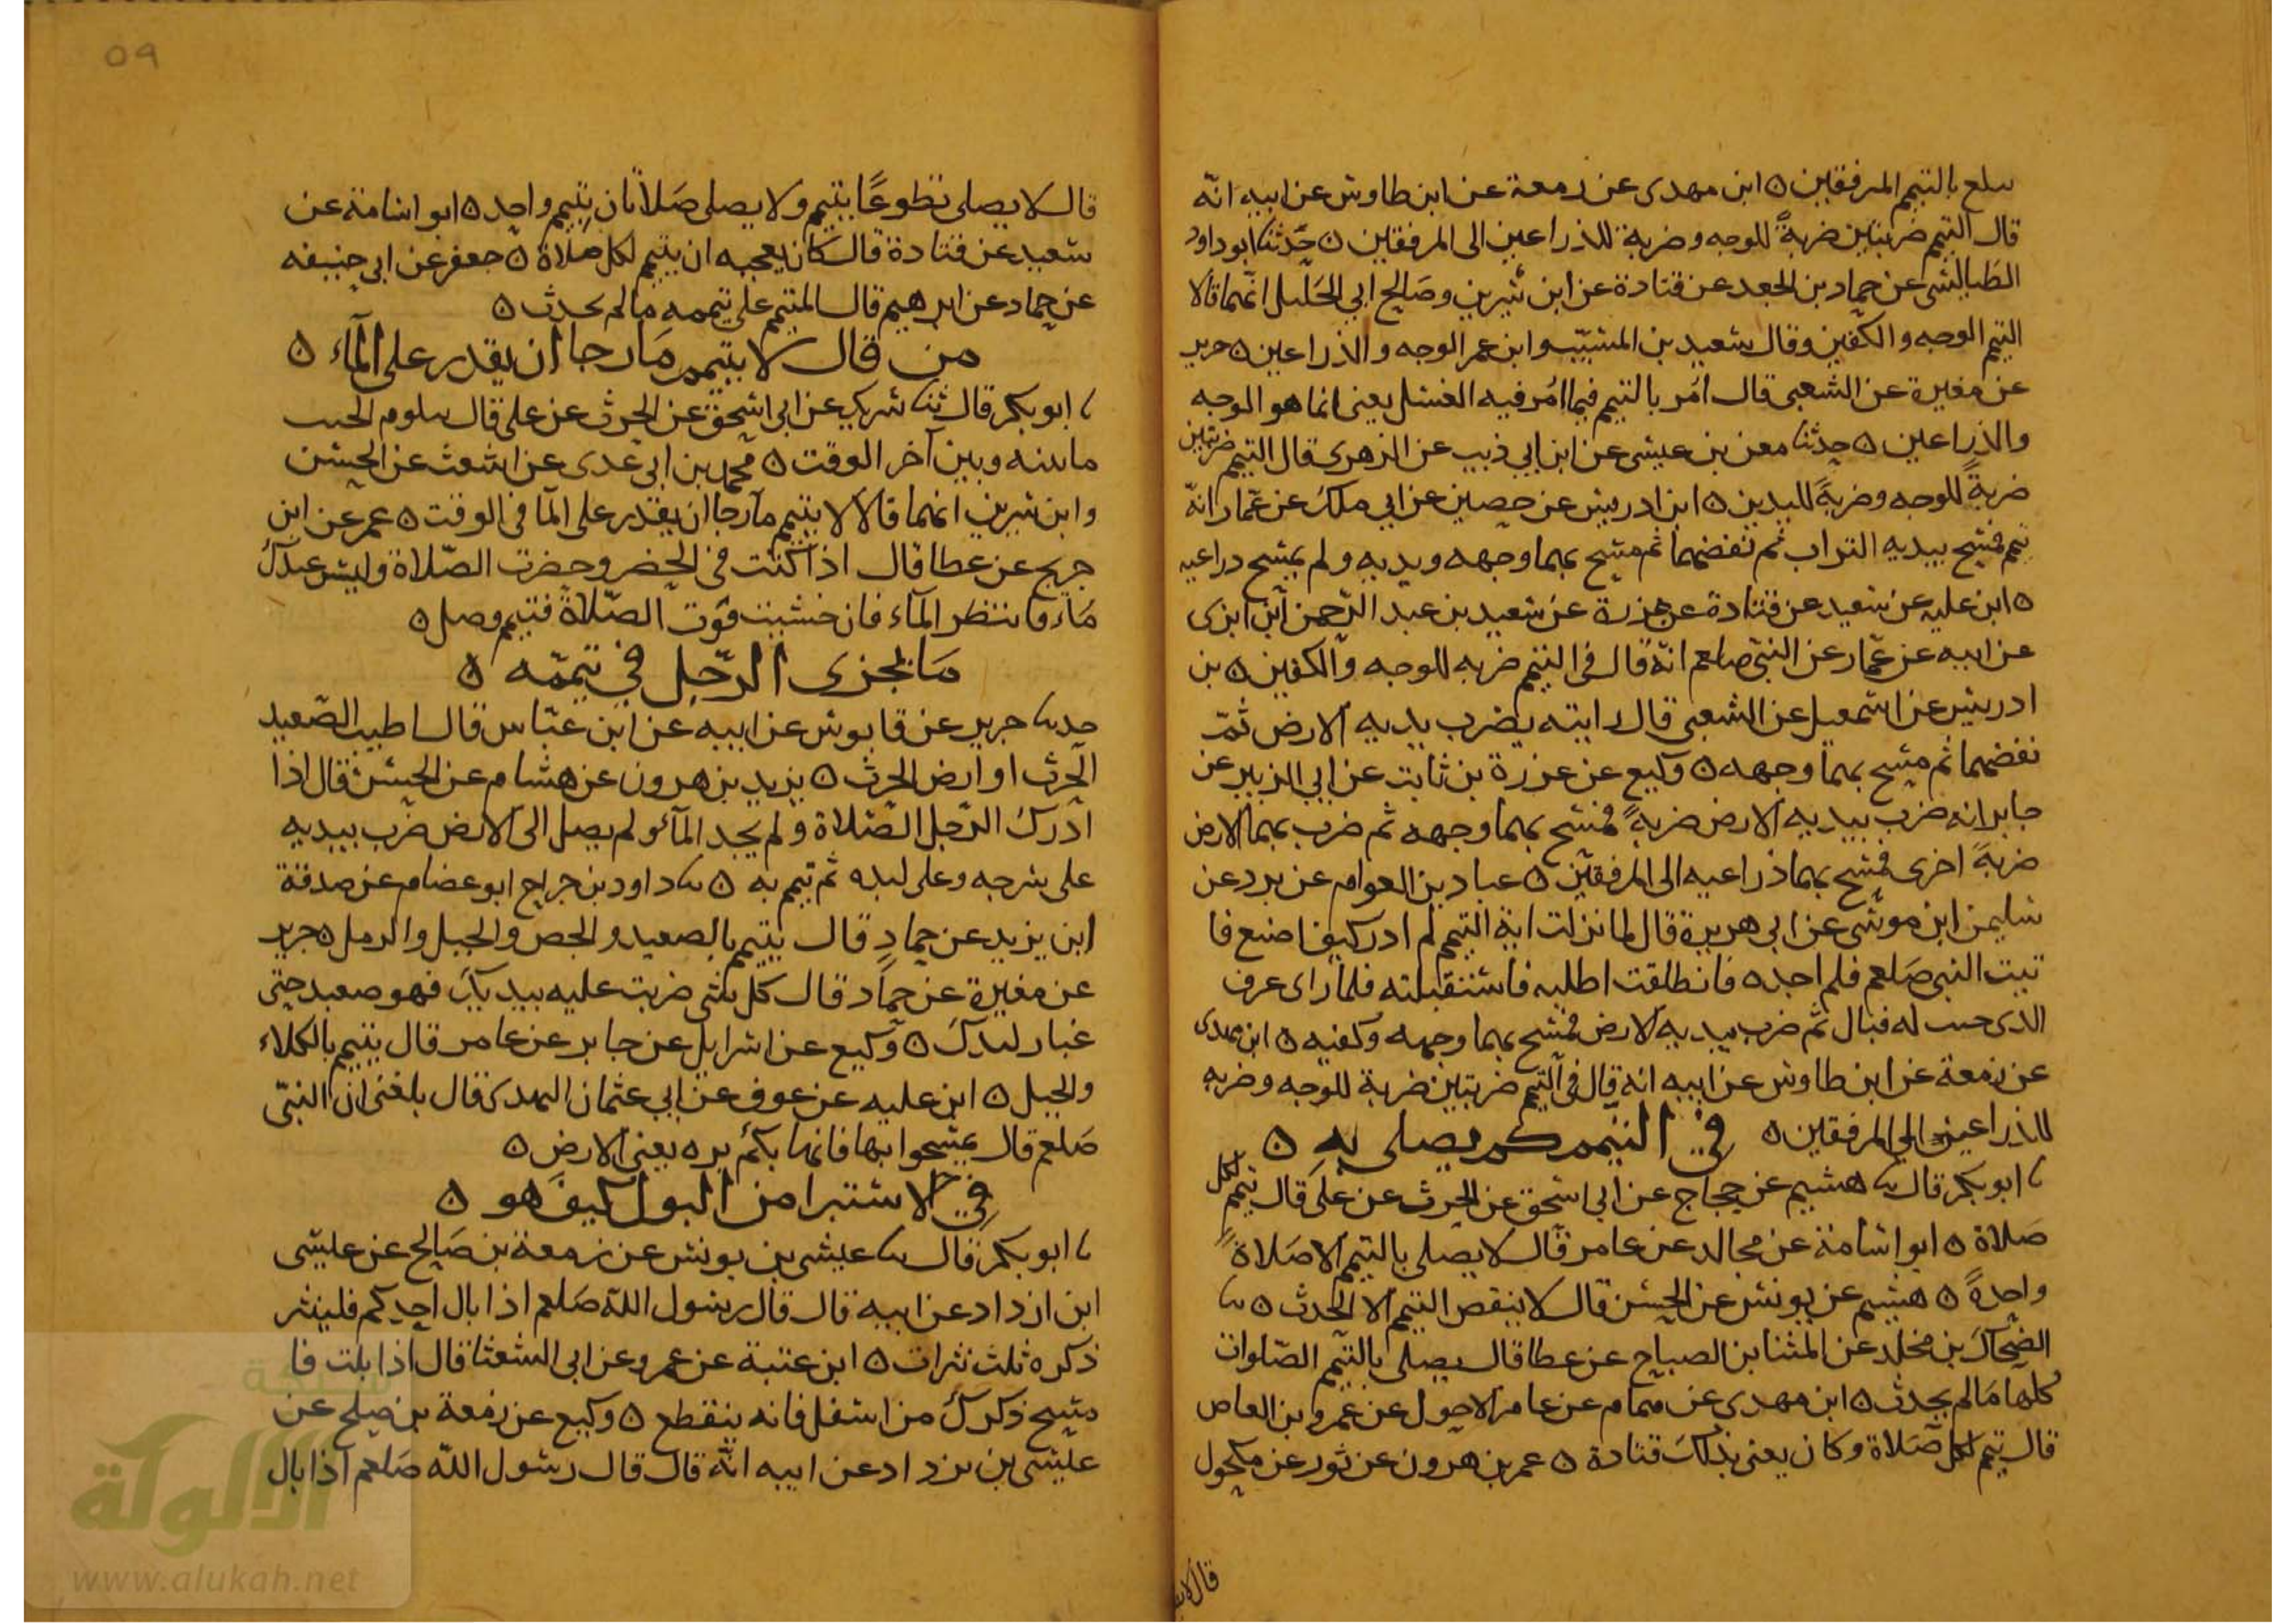 يبلغ بالتيمم المرفقين ٥ ابن مهدى عن زمعة عن ابن طاوس عن ابيه انّه
قال التيمم ضربتين ضربةً للوجه وضربة للذراعين الى المرفقين ٥ حدّثنا ابو داود
الطيالسى عن حماد بن الجعد عن قتادة عن ابن سيرين وصالح ابي الخليل انّهما قالا
التيمم الوجه والكفين وقال سعيد بن المسيّب وابن عمر الوجه والذراعين ٥ جرير
عن مغيرة عن الشعبى قال امر بالتيمم فيما امر فيه الغسل يعنى انما هو الوجه
والذراعين ٥ حدثنا معن بن عيسى عن ابن ابي ذيب عن الزهرى قال التيمم ضربتين
ضربةً للوجه وضربةً لليدين ٥ ابن ادريس عن حصين عن ابي ملك عن عمّار انّه
تيمم فمسح بيديه التراب ثم نفضهما ثم مسح بهما وجهه ويديه ولم يمسح دراعيه
٥ ابن عليه عن سعيد عن قتادة عن عزرة عن سعيد بن عبد الرّحمن ابن ابزى
عن ابيه عن عمّار عن النبّى صلعم انّه قال فى التيمم ضربه للوجه والكفين ٥ بن
ادريس عن اسمعيل عن الشعبى قال رايته يضرب بديه الارض ثمّ
نفضهما ثم مسح بهما وجهه ٥ وكيع عن عزرة بن ثابت عن ابي الزبير عن
جابر انه ضرب بيديه الارض ضربةً فمسح بهما وجهه ثم ضرب بهما الارض
ضربةً اخرى فمسح بهما ذراعيه الى المرفقين ٥ عباد بن العوام عن برد عن
سليمن ابن موسى عن ابى هريرة قال لما نزلت اية التيمم لم ادر كيف اصنع فا
تيت النبى صلعم فلم اجده فانطلقت اطلبه فاستقبلته فلما راى عرف
الذى جيت له فبال ثم ضرب بيديه الارض فمسح بهما وجهه وكفيه ٥ ابن مهدى
عن زمعة عن ابن طاوس عن ابيه انه قال فى التيمم ضربتين ضربة للوجه وضربه
للذراعين الى المرفقين ٥ في التيمم كم يصلى به ٥
ابو بكر قال ثنا هشيم عن حجاج عن ابى اسحق عن الحرث عن على قال تيمم لكل
صلاة ٥ ابو اسامة عن مجالد عن عامر قال لا يصلى بالتيمم الا صلاةً
واحدةً ٥ هشيم عن يونس عن الحسن قال لا ينقص التيمم الا الحدث ٥ ثنا
الضحاك بن مخلد عن المثنا بن الصباح عن عطا قال يصلى بالتيمم الصّلوات
كلها ما لم يحدث ٥ ابن مهدي عن همام عن عامر الاحول عن عمرو بن العاص
قال تيمم لكل صلاة وكان يعنى بذلك قتادة ٥ عمر بن هرون عن ثور عن مكحول
قال لا يصلى
٥٩
قال لا يصلى تطوعًا بتيمم ولا يصلى صلاتان بتيمم واحد ٥ ابو اسامة عن
سعيد عن قتادة قال كان يعجبه ان يتيمم لكل صلاة ٥ جعفر عن ابي حنيفه
عن حماد عن ابرهيم قال المتيمم على تيممه ما لم يحدث ٥
من قال لا يتيمم ما رجا ان يقدر على المآء ٥
ابو بكر قال ثنا شريك عن ابى اسحق عن الحرث عن على قال يتلوم الجنب
ما بينه وبين آخر الوقت ٥ محمد بن ابى عدى عن اشعث عن الحسن
وابن سيرين انهما قالا لا يتيمم ما رجا ان يقدر على الما فى الوقت ٥ عمر عن ابن
جريج عن عطا قال اذا كنت فى الحضر وحضرت الصّلاة وليس عندك
مآء فانتظر المآء فان خشيت فوت الصّلاة فتيمم وصل ٥
ما يجزى الرّجل في تيممّه ٥
حدثنا جرير عن قابوس عن ابيه عن ابن عبّاس قال اطيب الصّعيد
الحرث او ارض الحرث ٥ يزيد بن هرون عن هشام عن الحسن قال اذا
ادرك الرّجل الصّلاة ولم يجد المآء ولم يصل الى الارض ضرب بيديه
على سرجه وعلى لبده ثم تيمم به ٥ ثنا داود بن جراح ابو عصام عن صدقة
ابن يزيد عن حماد قال يتيمم بالصعيد والجص والجبل والرمل ٥ جرير
عن مغيرة عن حمّاد قال كل شى ضربت عليه بيديك فهو صعيد حتى
غبار لبدك ٥ وكيع عن اسرايل عن جابر عن عامر قال يتيمم بالكلاء
والجبل ٥ ابن عليه عن عوف عن ابي عثمان النهدى قال بلغنى ان النبىّ
صلعم قال تمسحوا بها فانها بكم بره يعنى الارض ٥
في الاستبرا من البول كيف هو ٥
ابو بكر قال ثنا عيسى بن يونس عن زمعة بن صالح عن عيسى
ابن ازداد عن ابيه قال قال رسول اللّه صلعم اذا بال احدكم فلينثر
ذكره ثلث نثرات ٥ ابن عتبة عن عمرو عن ابى الشعثا قال اذا بلت فا
مسح ذكرك من اسفل فانه ينقطع ٥ وكيع عن زمعة بن صلح عن
عيسى بن يزداد عن ابيه انّه قال قال رسول اللّه صلعم اذا بال
شبكة
الألوكة
www.alukah.net